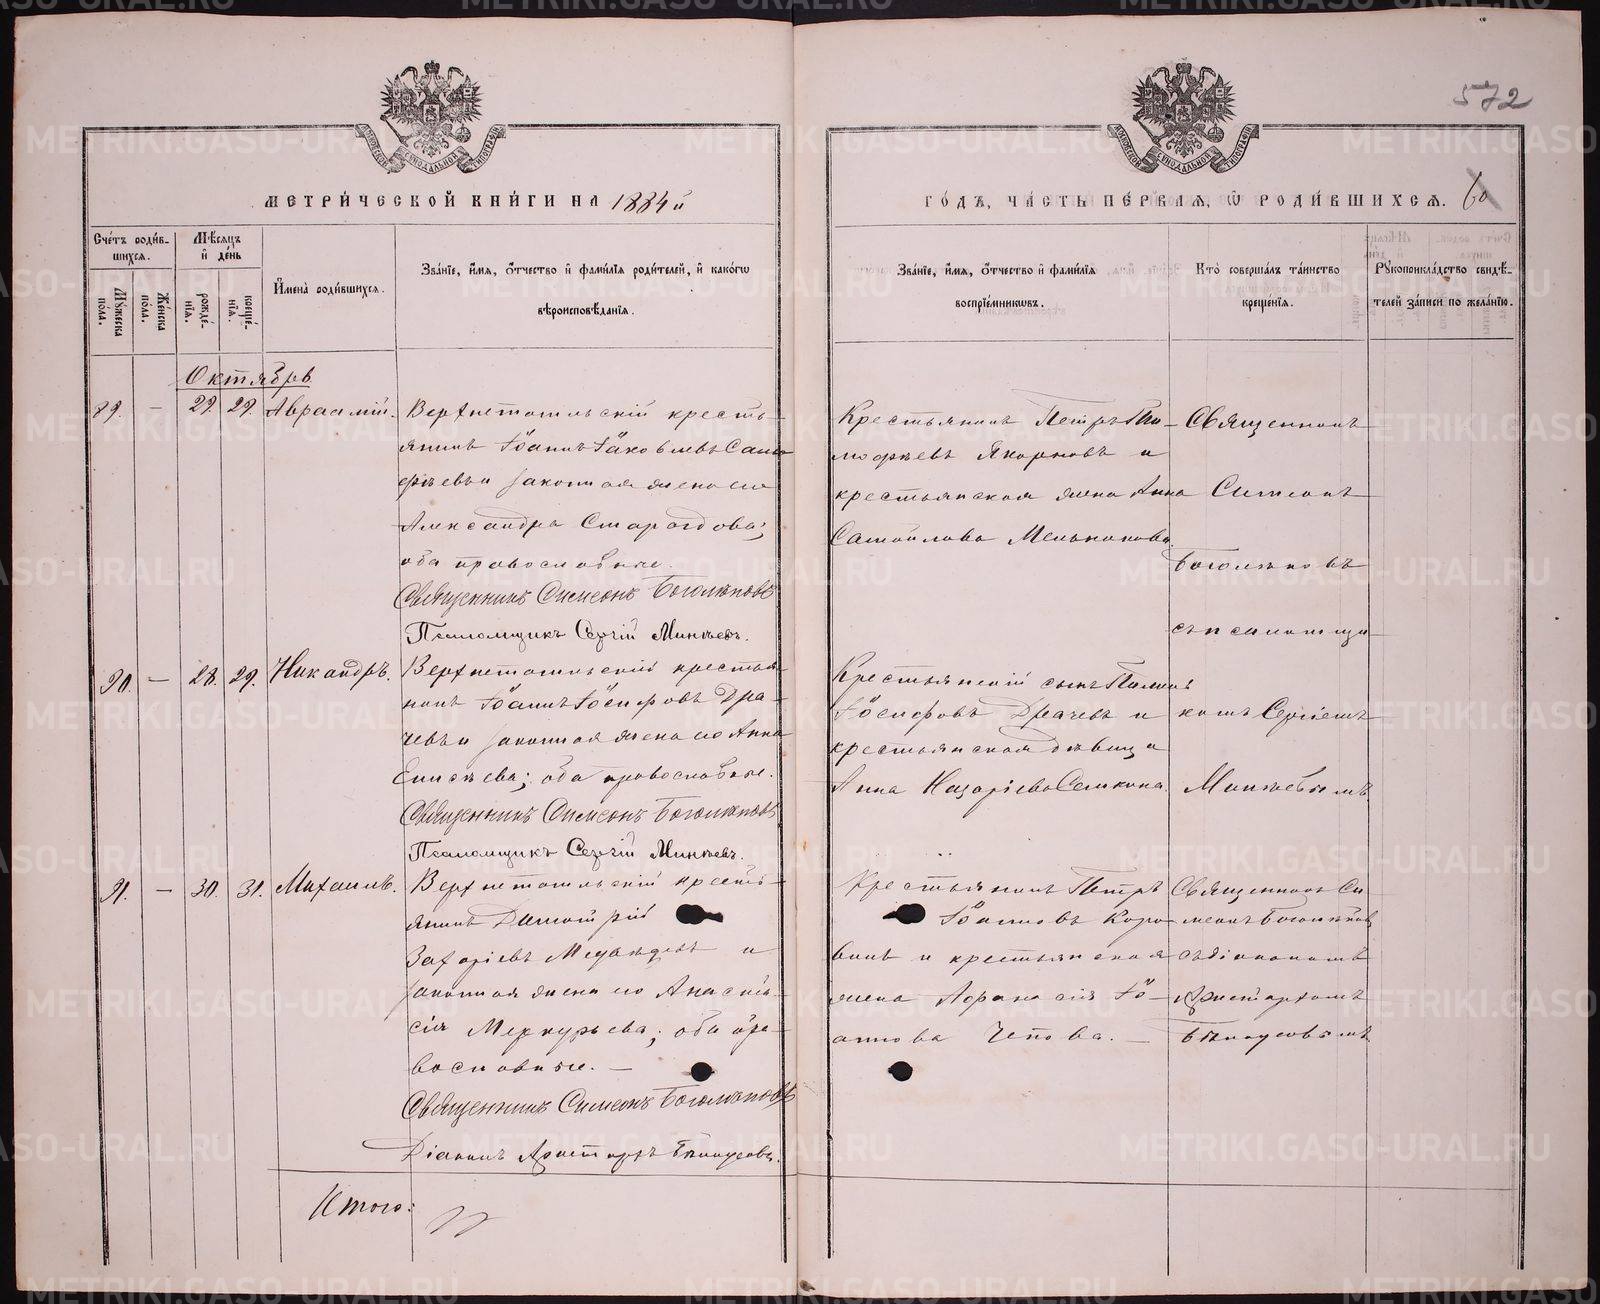 572
МЕТРИ́ЧЕСКОЙ КНИ́ГИ НА 1884й
ГО́ДЪ, ЧА́СТЬ ПЕ́РВАЯ, Ѡ РОДИ́ВШИХСЯ. 60
Сче́тъ роди́в-
шихся.
Му́жеска по́ла.
Же́нска по́ла.
Мѣ́сяцъ и҆ де́нь
рожде́-нїя.
креще́-нїя.
И҆мена̀ роди́вшихся.
Зва́нїе, и҆́мя, ѻ҆́тчество и҆ фами́лїя роди́телей, и҆ како́гѡ
вѣроисповѣ́данїя.
Зва́нїе, и҆́мя, ѻ҆́тчество и҆ фами́лїя
воспрїе́мникѡвъ.
Кто̀ соверша́лъ та́инство
креще́нїя.
Рꙋкоприкла́дство свидѣ́-
телей за́писи по жела́нїю.
Октябрь
89. — 29. 29. Авраамій.
Верхнетагильскій кресть-
янинъ Іоаннъ Іаковлевъ
и законная жена его
Александра
оба православные.
Священникъ Симеонъ Боголѣповъ
Псаломщикъ Сергій Минѣевъ.
Крестьянинъ Петръ Ти-
мофѣевъ Якорновъ и
крестьянская жена Анна
Самойлова Меньшикова
Священникъ
Симеонъ
Боголѣповъ
съ псаломщи-
90. — 28. 29. Никандръ.
Верхнетагильскій крестья-
нинъ Іоаннъ Іосифовъ Дра-
чевъ и законная жена его Анна
Елисѣева; оба православные.
Священникъ Симеонъ Боголѣповъ
Псаломщикъ Сергій Минѣевъ.
Крестьянскій сынъ
Іосифовъ Драчевъ и
крестьянская дѣвица
Анна Назаріева Селикина.
комъ Сергіемъ
Минѣевымъ
91. — 30. 31. Михаилъ.
Верхнетагильскій кресть-
янинъ Димитрій
Захаріевъ Медвѣдевъ и
законная жена его Анаста-
сія Меркурьева; оба пра-
вославные. —
Священникъ Симеонъ Боголѣповъ
Діаконъ Аристархъ Бѣлоусовъ.
Крестьянинъ Петръ
Іоанновъ Коро-
винъ и крестьянская
жена Іо-
аннова Чепова. —
Священникъ Си-
меонъ Боголѣповъ
съ діакономъ
Аристархомъ
Бѣлоусовымъ
Итого: